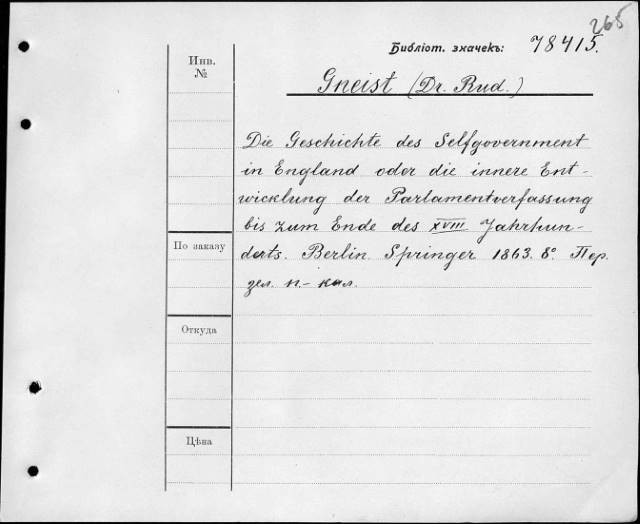 265
Библіот. значекъ: 78415.
Инв.
№
Gneist (Dr. Rud.)
Die Geschichte des Selfgovernment
in England oder die innere Ent-
wicklung der Parlamentverfassung
bis zum Ende des XVIII Jahrhun-
derts. Berlin. Springer 1863. 8º. Пер.
зел. к.- кал.
По заказу
Откуда
Цѣна